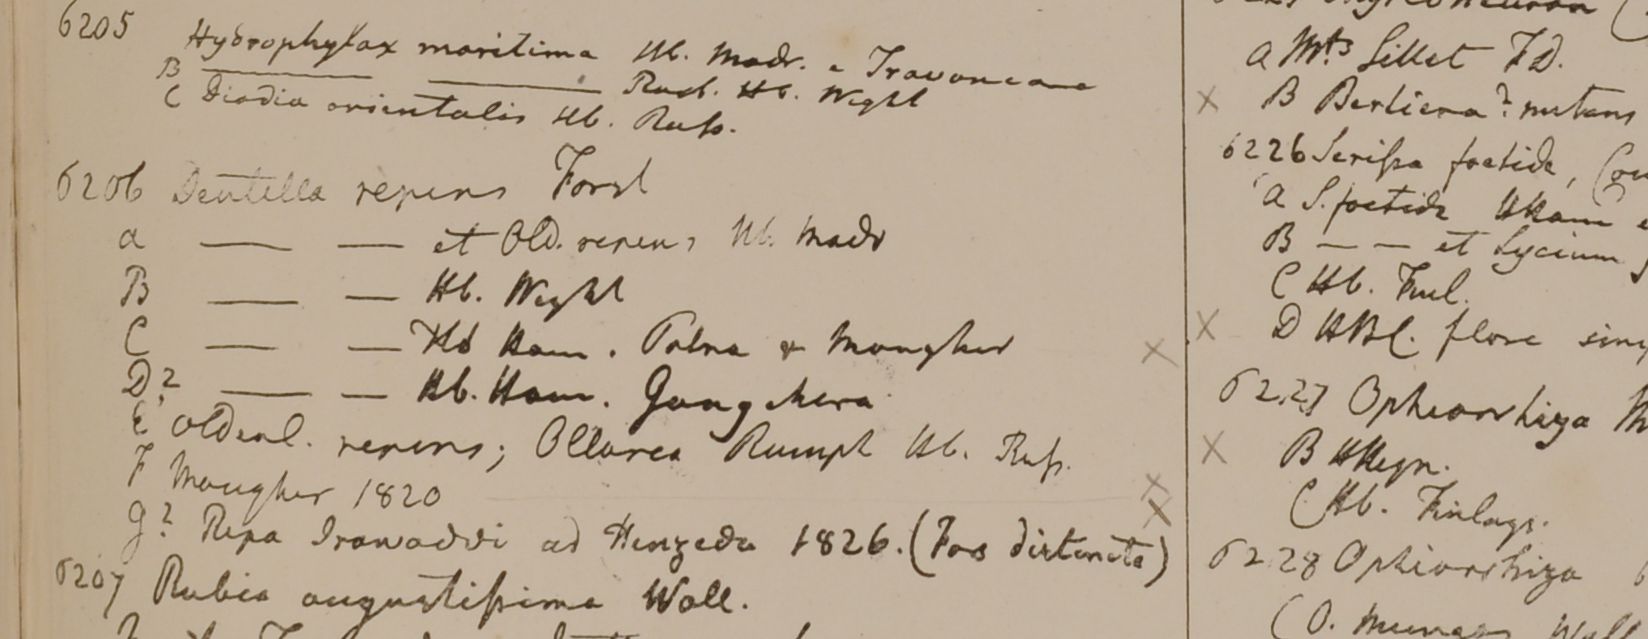 6205 Hydrophylax maritima Hb. Madr. e Travancore
B ___ ___ Hb. Wight
C Diodia orientalis Hb. Russ.
6206 Dentella repens Forst
a — — et Old. repens Hb. Madr
B — — Hb. Wight
C — — Hb Ham. Patna & Mongher
D? — — Hb. Ham. Gongachora
E Oldenl. repens; Rumph Hb. Russ.
F Mongher 1820
g? Ripa Irawaddi ad Henzeda 1826. (Fors distincta)
6207 Rubia angustissima Wall.
a Mts Sillet FD.
B Bertiera? nutans
6226 Serissa foetida,
a S. foetida HHam
B — — et Lycium
C Hb. Finl.
D HBC. flore
6227 Ophiorrhiza
B HHeyn.
C Hb. Finlays.
6228 Ophiorrhiza
(O. Wall